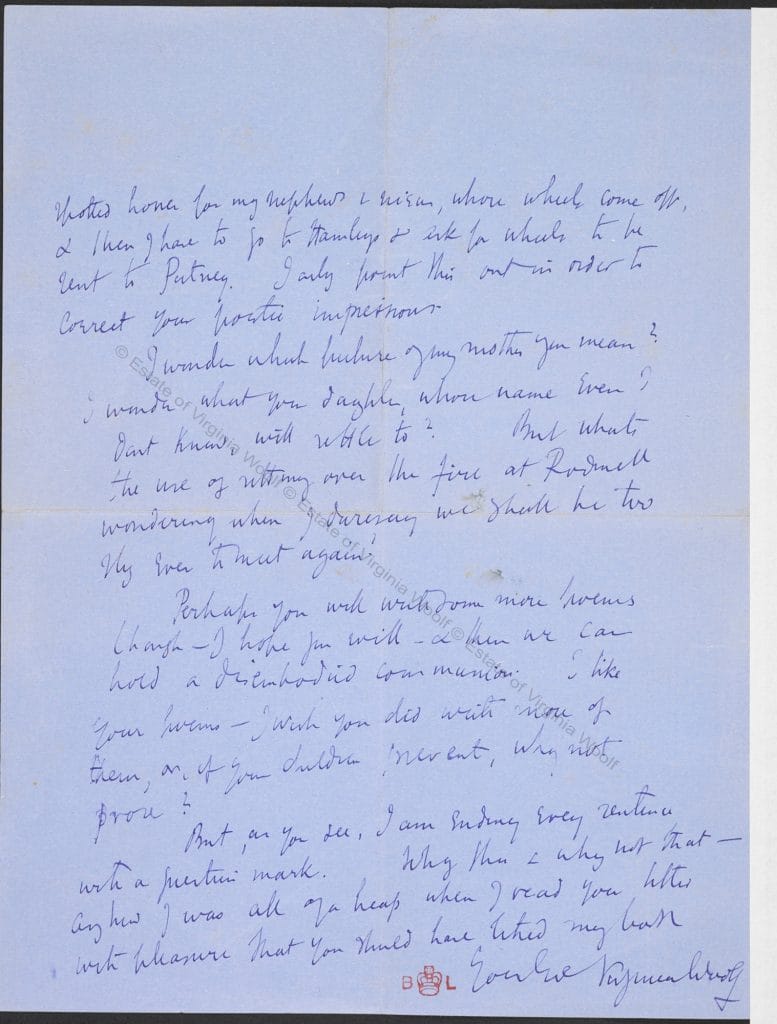 spotted horses for my nephews & nieces, whose wheels come off,
& then I have to go to Hamleys & ask for wheels to be
sent to Putney. I only point this out in order to
correct your poetic impressions
I wonder which picture of my mother you mean?
I wonder what your daughter, whose name even I
dont know, will settle to? But whats
the use of sitting over the fire at Rodmell
wondering when I daresay we shall be two
ever to meet again,
Perhaps you will write some more poems
though – I hope you will – & then we can
hold a disembodied communion. I like
your poems – I wish you did write more of
them, or, if your children prevent, why not
prose?
But, as you see, I am ending every sentence
with a question mark. Why this & why not that –
anyhow I was all of a heap when I read your letter
with pleasure that you should have liked my book
Virginia Woolf
B L
© Estate of Virginia Woolf © Estate of Virginia Woolf © Estate of Virginia Woolf